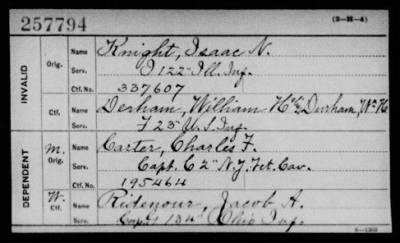 257794
(3-H-4)
INVALID
Orig.
Name Knight, Isaac N.
Serv. I 122" Ill. Inf.
Ctf. No. 337607
Ctf.
Name Derham, William H. Durham, Wm H
Serv. F 23" U.S. Inf.
DEPENDENT
M. Orig.
Name Carter, Charles F.
Serv. Capt. C 2" N.Y. Vet. Cav.
Ctf. No. 195464
W. Ctf.
Name Ridenour, Jacob A.
Serv. Ohio Inf.